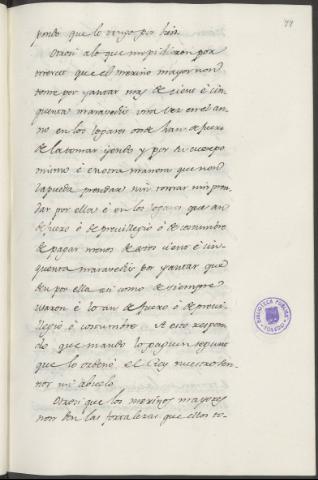 99
pondo que lo tengo por bien.
Otrosi alo que me pidieron por
merced que el merino mayor non
tome por yantar mas de ciento è cin
quenta maravedis una vez en el an
no en los logares onde han de fuero
de la tomar yendo y por su cuerpo
mismo è en otra manera que non
la pueda prendar nin tomar nin pren
dar por ella è en los logares que an
de fuero ò de previllegio ò de costumbre
de pagar menos de estos ciento è cin
quenta maravedis por yantar que
den por ella asi como de siempre
usaron è lo an de fuero ò de previ
llegio ò costumbre A esto respon
do que mando lo paguen segunt
que lo ordenò el Rey nuestro sen
nor mi abuelo.
Otrosi que los merinos mayores
non den las fortalezas que ellos to-
BIBLIOTECA PUBLICA
TOLEDO